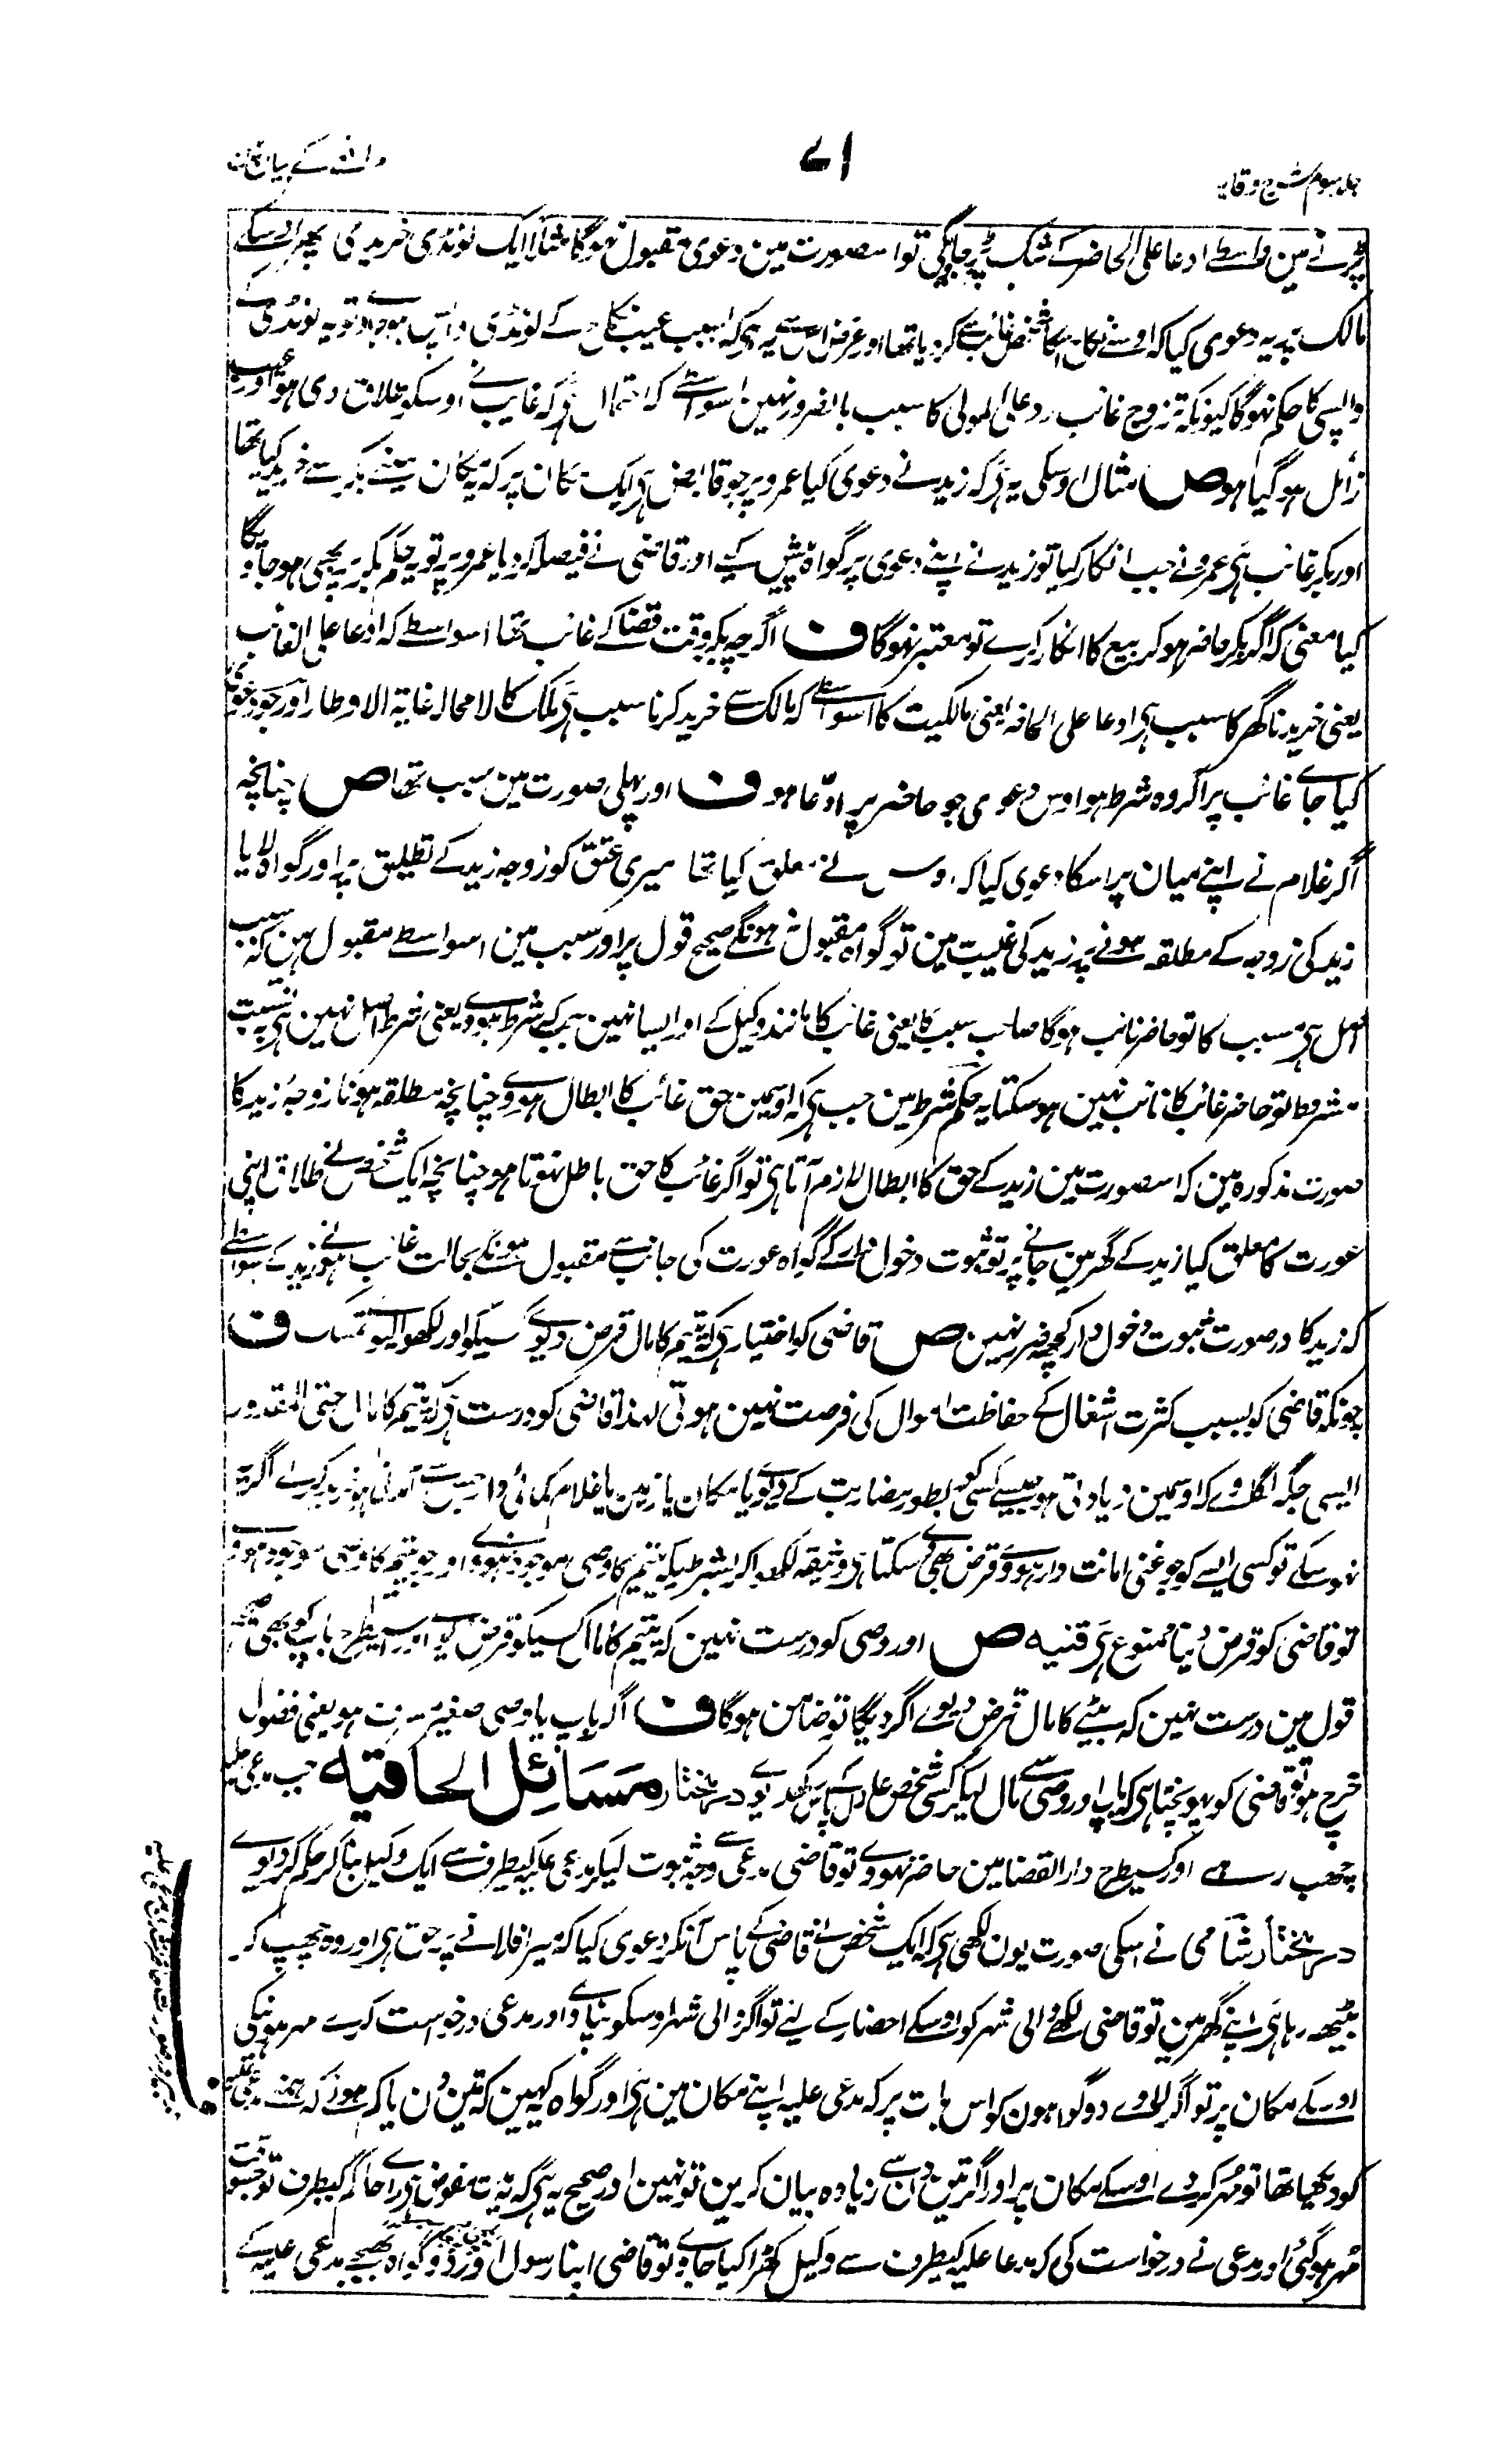 جلد سوم شرح وقایہ
۷۱
کے بیان مین
پڑنے مین واسطے ادعا علی الحاضر کے شک پڑ جاویگی تو اسصورت مین دعوی مقبول نہوگا مثلاً ایک لونڈی خریدی پھر اوسکے
مالک پر یہ دعوی کیا کہ اوسنے نکاح اسکا شخص غائب سے کر دیا تھا اور غرض اس سے یہ ہی کہ بسبب عیب نکاح کے لونڈی واپس ہو جاوے تو یہ لونڈی کے
واپسی کا حکم نہوگا کیونکہ تزوج غائب رد علی المولی کا سبب بالضرور نہین اسواسطے کہ احتمال ہی کہ غائب نے اوسکو طلاق دی ہو اور عیب
زائل ہو گیا ہو ص مثال اوسکی یہ ہی کہ زید نے دعوی کیا عمرو پر جو قابض ہی ایک مکان پر کہ یہ مکان مینے بکر سے خرید کیا تھا
اور بکر غائب ہی عمرو نے جب انکار کیا تو زید نے اپنے دعوی پر گواہ پیش کیے اور قاضی نے فیصلہ کر دیا عمرو پر تو یہ حکم بکر پر بھی ہو جاویگا
کیا معنی کہ اگر بکر حاضر ہو کر بیع کا انکار کرے تو معتبر نہوگا ف اگرچہ بکر وقت قضا کے غائب تھا اسواسطے کہ ادعا علی الغائب
یعنی خریدنا گھر کا سبب ہی ادعا علی الحاضر یعنی مالکیت کا اسواسطے کہ مالک سے خرید کرنا سبب ہی ملک کا لا محالہ غایة الاوطار اور جو دعوی
کیا جاے غائب پر اگر وہ شرط ہو اوس دعوی جو حاضر پر ادّعا ہو ف اور پہلی صورت مین سبب تھا ص چنانچہ
اگر غلام نے اپنے میان پر اسکا دعوی کیا کہ اوس نے معلق کیا تھا میری عتق کو زوجہ زید کے تطلیق پر اور گواہ لایا
زید کی زوجہ کے مطلقہ ہونے پر زید کی غیبت مین تو گواہ مقبول نہونگے صحیح قول پر اور سبب مین اسواسطے مقبول ہین کہ سبب
اصل ہی مسبب کا تو حاضر نائب ہوگا صاحب سبب کا یعنی غائب کا مانند وکیل کے اور ایسا نہین جب کہ شرط ہووے یعنی شرط اصل نہین ہی بہ نسبت
مشروط تو حاضر غائب کا نائب نہین ہو سکتا یہ حکم شرط مین جب ہی کہ اوسمین حق غائب کا ابطال ہووے چنانچہ مطلقہ ہونا زوجۂ زید کا
صورت مذکورہ مین کہ اسصورت مین زید کے حق کا ابطال لازم آتا ہی تو اگر غائب کا حق باطل نہوتا ہو چنانچہ ایک شخص نے طلاق اپنی
عورت کا معلق کیا زید کے گھر مین جانے پر تو ثبوت دخول دار کے گواہ عورت کی جانب سے مقبول ہونگے بحالت غائب ہونے زید کے اسواسطے
کہ زید کا درصورت ثبوت دخول دار کچھ ضرر نہین ص قاضی کو اختیار ہی کہ یتیم کا مال قرض دیوے کسیکو اور لکھوا لیوے تمسک ف
چونکہ قاضی کو بسبب کثرت اشغال کے حفاظت اموال کی فرصت نہین ہوتی لہذا قاضی کو درست ہی کہ یتیم کا مال حتی المقدور
ایسی جگہ لگاوے کہ اوسمین زیادتی ہو جیسے کسی کو بطور مضاربت کے دیوے یا مکان یا زمین یا غلام کمائی والا جس سے آمدنی ہو خرید کرے اگر یہ
نہو سکے تو کسی ایسے کو جو غنی امانت دار ہووے قرض بھی دے سکتا ہی وثیقہ لکھوا کر بشرطیکہ یتیم کا وصی موجود نہووے اور جو یتیم کا وصی موجود ہووے
تو قاضی کو قرض دینا ممنوع ہی قنیہ ص اور وصی کو درست نہین کہ یتیم کا مال کسیکو قرض دیوے اور اسیطرح باپ کو بھی صحیح
قول مین درست نہین کہ بیٹے کا مال قرض دیوے اگر دیگا تو ضامن ہوگا ف اگر باپ یا وصی صغیر مسرف ہو یعنی فضول
خرچ ہو تو قاضی کو پہونچتا ہی کہ باپ اور وصی سے مال لیکر کسی شخص عادل کے پاس رکھدیوے درمختار مسَائِل الحاقیہ جب مدعی علیہ
چھپ رہے اور کسیطرح دار القضا مین حاضر نہووے تو قاضی مدعی سے وجہ ثبوت لیکر مدعی علیہ کیطرف سے ایک وکیل بنا کر حکم کر دیوے
درمختار شامی نے اسکی صورت یون لکھی ہی کہ ایک شخص نے قاضی کے پاس آنکر دعوی کیا کہ میرا فلانے پر حق ہی اور وہ چھپ کر
بیٹھ رہا ہی اپنے گھر مین تو قاضی لکھے والی شہر کو اوسکے احضار کے لیے تو اگر والی شہر اوسکو نپاوے اور مدعی درخواست کرے مہر ہونیکی
اوسکے مکان پر تو اگر لاوے دو گواہون کو اس بات پر کہ مدعی علیہ اپنے مکان مین ہی اور گواہ کہین کہ تین دن یا کم ہوئے کہ ہمنے مدعی علیہ
کو دیکھا تھا تو مُہر کر دے اوسکے مکان پر اور اگر تین دن سے زیادہ بیان کرین تو نہین اور صحیح یہ ہی کہ مدت مفوض ہی راے حاکم کیطرف تو جسوقت
مُہر ہو گئی اور مدعی نے درخواست کی کہ مدعا علیہ کیطرف سے وکیل کھڑا کیا جاوے تو قاضی اپنا رسول اور دو گواہ بھیجے مدعی علیہ کے